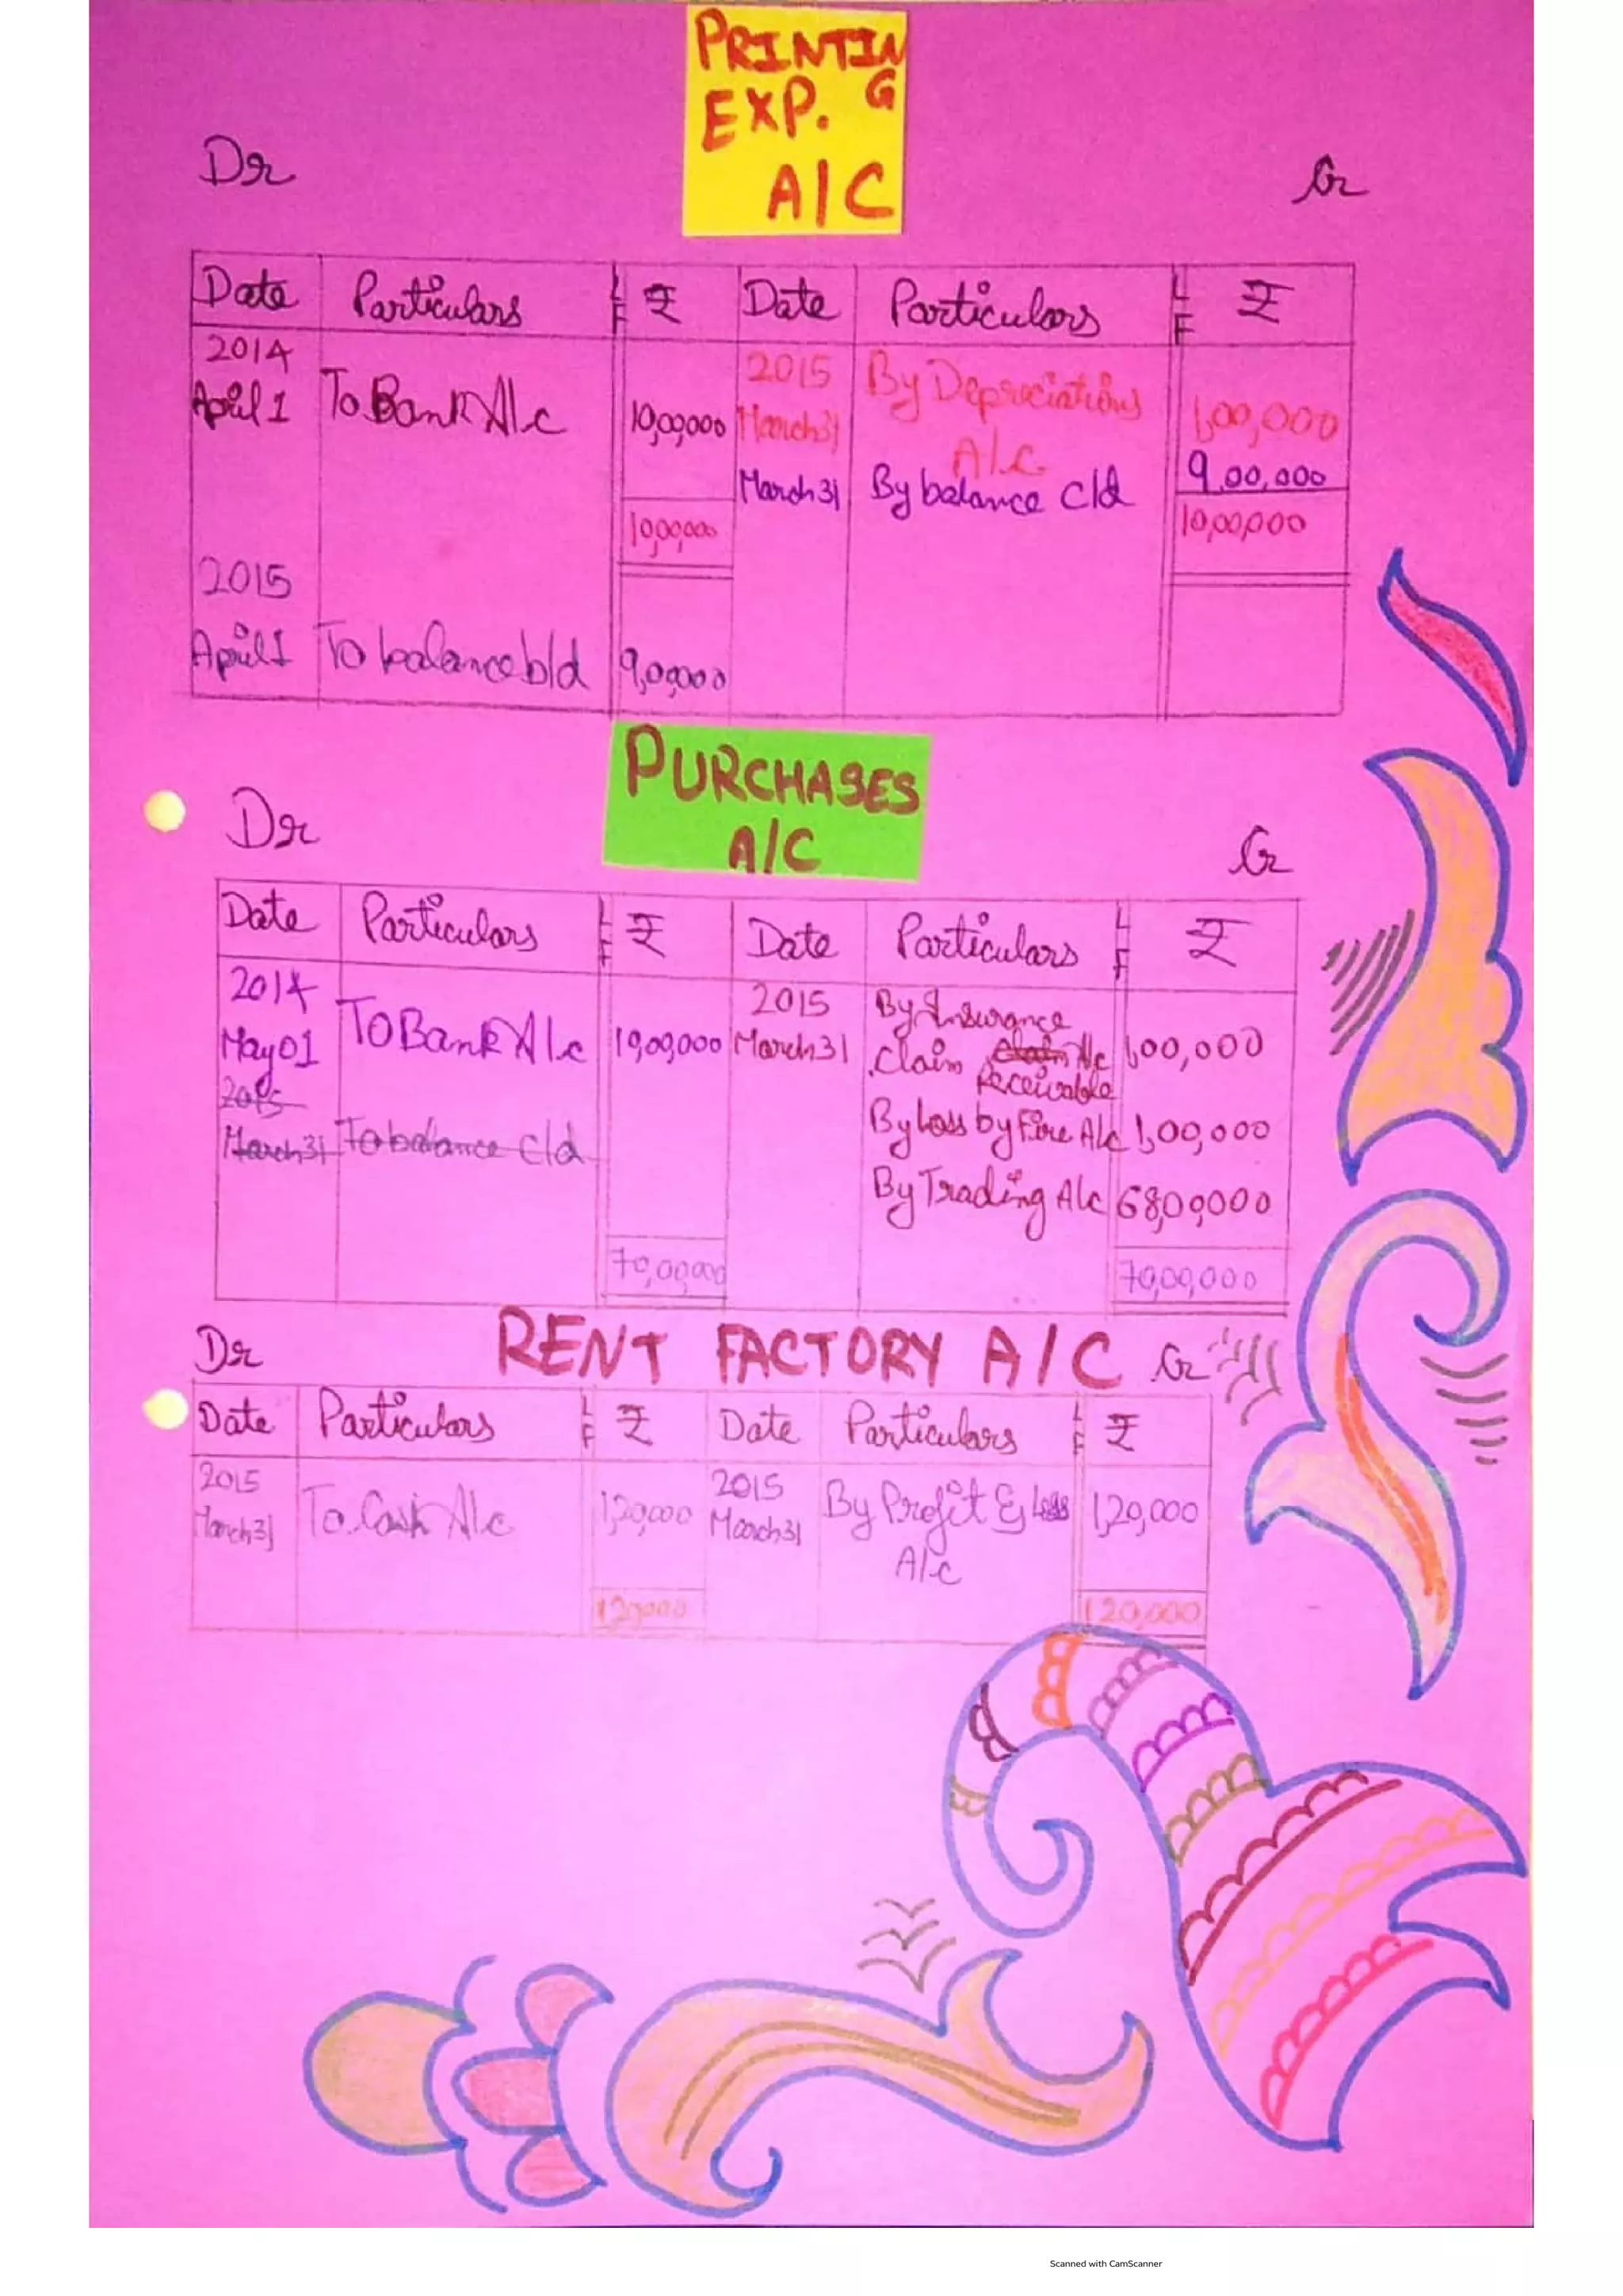 PRINTIN
G
EXP.
A/C
Dr Cr
Date Particulars LF ₹ Date Particulars LF ₹
2014 2015 By Depreciation
April 1 To Bank A/c 10,00,000 March 31 A/c 1,00,000
March 31 By balance c/d 9,00,000
10,00,000 10,00,000
2015
April 1 To balance b/d 9,00,000
PURCHASES
A/C
Dr Cr
Date Particulars LF ₹ Date Particulars LF ₹
2014 2015 By Insurance
May 01 To Bank A/c March 31 Claim A/c 1,00,000
Receivable
2015
March 31 To balance c/d By Loss by Fire A/c 1,00,000
By Trading A/c 68,00,000
70,00,000 70,00,000
Dr RENT FACTORY A/C Cr
Date Particulars LF ₹ Date Particulars LF ₹
2015 2015
March 31 To Cash A/c 1,20,000 March 31 By Profit & Loss 1,20,000
A/c
120,000 120,000
Scanned with CamScanner